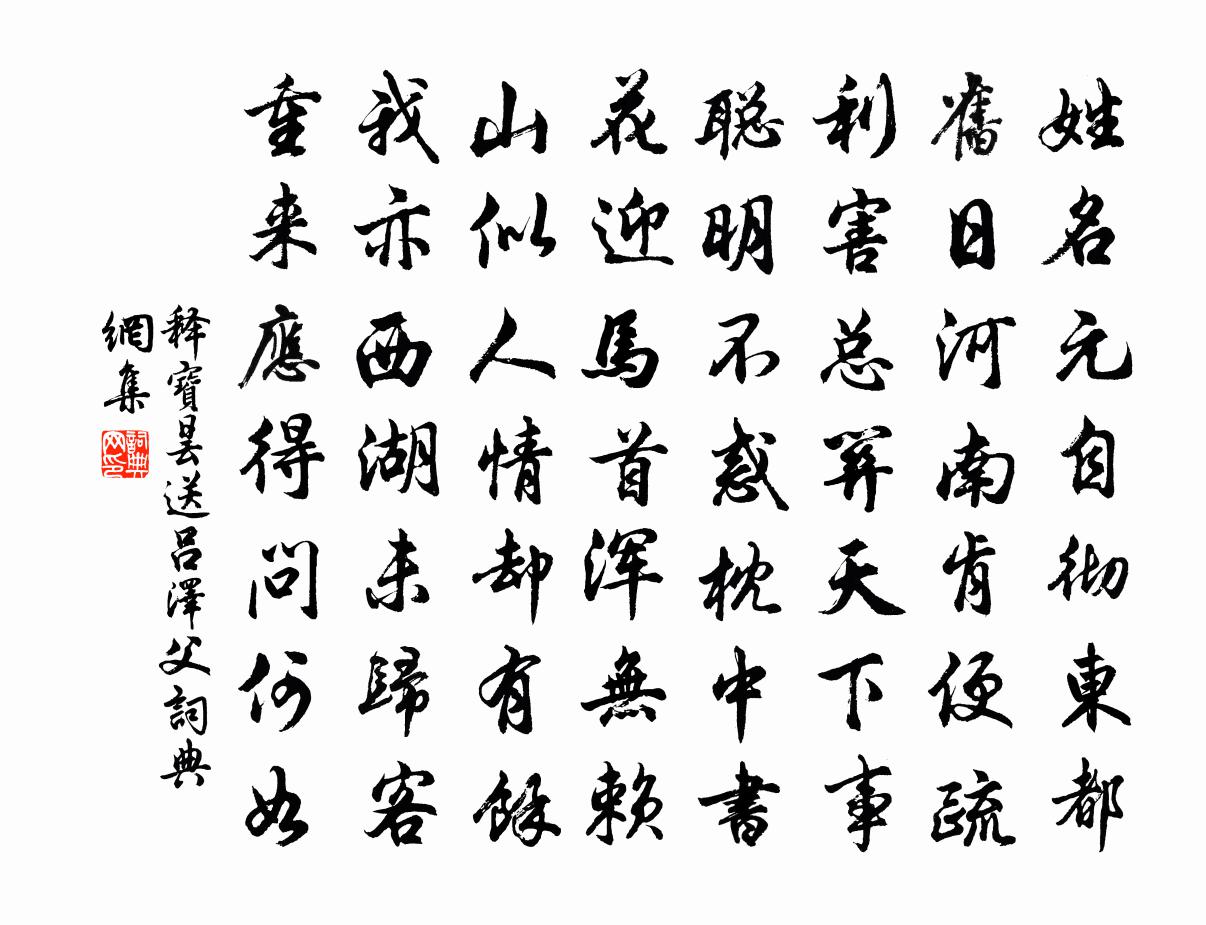 姓名元自彻東都
舊日河南肯便疏
利害总关天下事
聪明不惑枕中書
花迎馬首浑無赖
山似人情却有餘
我亦西湖未歸客
重来應得問何如
释寶昙送吕澤父詞典
網集
詞典
网印